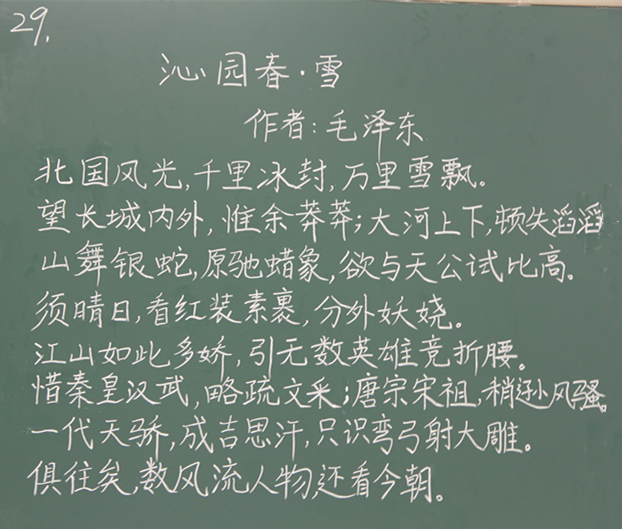 29.
沁园春·雪
作者:毛泽东
北国风光,千里冰封,万里雪飘。
望长城内外,惟余莽莽;大河上下,顿失滔滔
山舞银蛇,原驰蜡象,欲与天公试比高。
须晴日,看红装素裹,分外妖娆。
江山如此多娇,引无数英雄竞折腰。
惜秦皇汉武,略疏文采;唐宗宋祖,稍逊风骚。
一代天骄,成吉思汗,只识弯弓射大雕。
俱往矣,数风流人物,还看今朝。